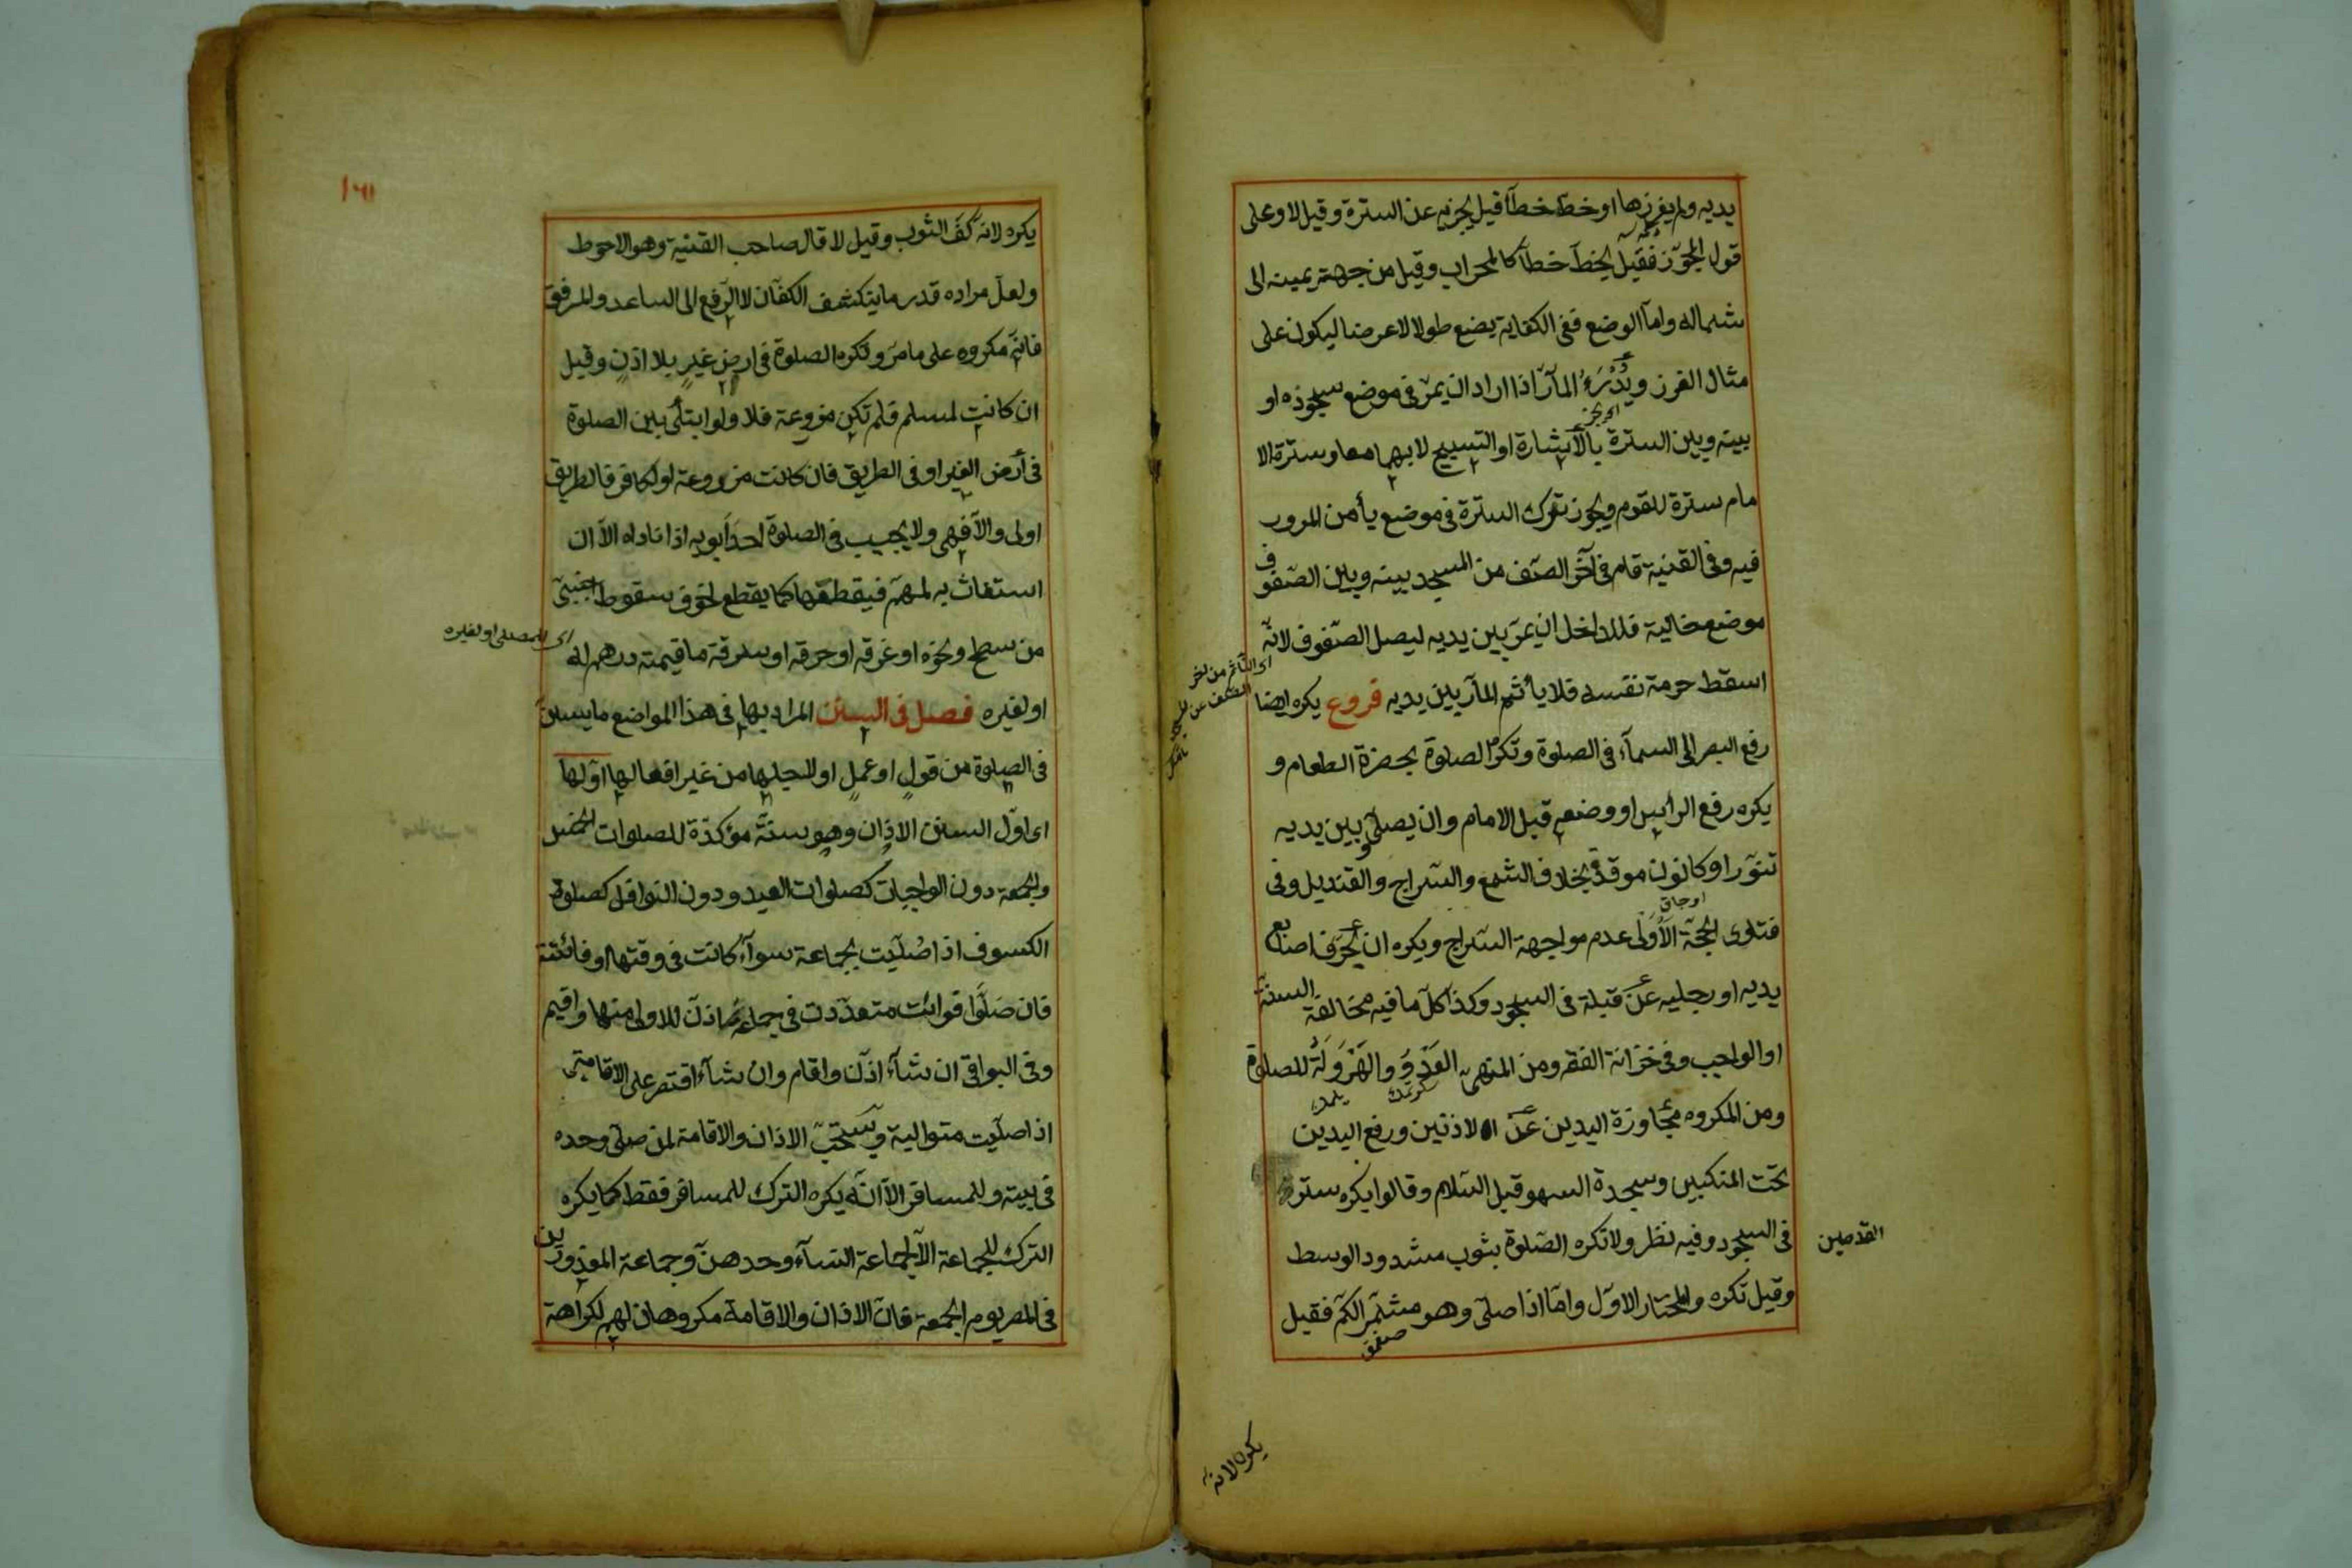 يديه ولم يغرزها او خطّ خطاً قيل يجزيه عن السترة وقيل لا وعلى
قول المجوّز فقيل يخطّ خطاً كالمحراب وقيل من جهة يمينه الى
شماله واما الوضع ففى الكفاية يضع طولا لا عرضا ليكون على
مثال الغرز ويُدْرَءُ المآرّ اذا اراد ان يمرّ فى موضع سجوده او
بينه وبين السترة بالاشارة او التسبيح لا بهما معا وسترة الا
مام سترة للقوم ويجوز ترك السترة فى موضع يأمن المرور
فيه وفى القنية قام فى آخر الصّف من المسجد بينه وبين الصّفوف
موضع خالية فللداخل ان يمرّ بين يديه ليصل الصّفوف لانّه
اسقط حرمة نفسه فلا يأثم المآرّ بين يديه فروع يكره ايضا
رفع البصر الى السمآء فى الصلوة وتكره الصلوة بحضرة الطعام و
يكره رفع الراس او وضعه قبل الامام وان يصلّى وبين يديه
تنوّر او كانون موقدة بخلاف الشمع والسّراج والقنديل وفى
اوجاق
فتاوى الحجّة الاَولى عدم مواجهة السّراج ويكره ان يحرّف اصابع
يديه او رجليه عن قبلة فى السجود وكذا كلّ ما فيه مخالفة السنّة
او الواجب وفى خزانة الفقه ومن المنهىّ العَدْوُ والهَرْوَلَةُ للصلوة
ومن المكروه مجاوزة اليدين عن الاذنين ورفع اليدين
تحت المنكبين وسجدة السهو قبل السّلام وقالوا يكره ستر
القدمين
فى السجود وفيه نظر ولا تكره الصّلوة بثوب مشدود الوسط
وقيل تكره والمختار الاوّل وامّا اذا صلّى وهو مشمّر الكمّ فقيل
يكره لانّه
يكره لانّه كفّ الثوب وقيل لا قال صاحب القنية وهو الاحوط
ولعلّ مراده قدر ما ينكشف الكفّان لا الرّفع الى الساعد والمرفق
فانّه مكروه على ما مرّ وتكره الصلوة فى ارض غيرٍ بلا اذنٍ وقيل
ان كانت لمسلم فلم تكن مزروعة فلا ولو ابتلى بين الصلوة
فى أرض الغير او فى الطريق فان كانت مزروعة او لكافر فالطريق
اولى والاّ فهى ولا يجيب فى الصلوة احدَ ابويه اذا ناداه الاّ ان
استغاث به لمهمّ فيقطعها كما يقطع لخوف سقوط اجنبىّ
من سطح ونحوه او غرقه او حرقه او سرقة ما قيمته درهم له
اى للمصلى او لغيره
او لغيره فصل فى السنن المراد بها فى هذا المواضع ما يسنّ
فى الصلوة من قولٍ او عملٍ او لاجلها من غير افعالها اوّلها
اى اوّل السنن الاذان وهو سنّة مؤكدّة للصلوات الخمس
والجمعة دون الواجبات كصلوات العيد ودون النوافل كصلوة
الكسوف اذا صُلّيت بجماعة سوآء كانت فى وقتها او فائتة
فان صَلَّوا فوائت متعدّدت فى جماعة اذّن للاولى منها واقيم
وفى البواقى ان شآء اذّن واقام وان شآء اقتصر على الاقامة
اذا صلّيت متوالية ويستحبّ الاذان والاقامة لمن صلّى وحده
فى بيته وللمسافر الاّ انّه يكره الترك للمسافر فقط كما يكره
الترك للجماعة الاّ لجماعة النسآء وحدهنّ وجماعة المعذورين
فى المصر يوم الجمعة فانّ الاذان والاقامة مكروهان لهم لكراهة